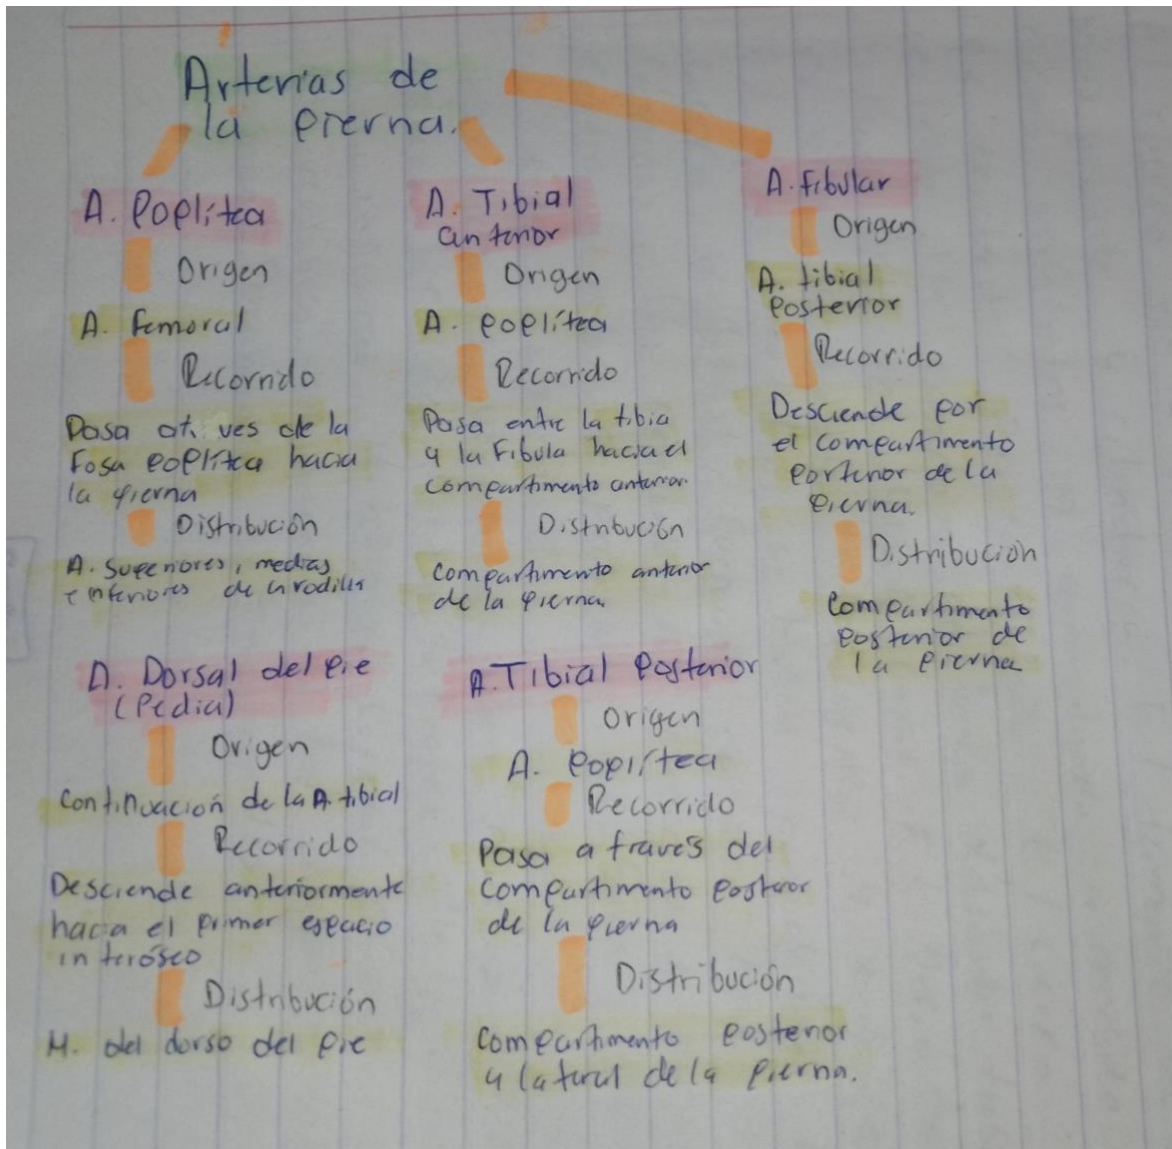 Arterias de
la pierna.
A. Poplítea
Origen
A. Femoral
Recorrido
Pasa a través de la
Fosa poplítea hacia
la pierna
Distribución
A. superiores, medias
e inferiores de la rodilla
A. Tibial
anterior
Origen
A. poplítea
Recorrido
Pasa entre la tibia
y la Fibula hacia el
compartimento anterior.
Distribución
compartimento anterior
de la pierna.
A. fibular
Origen
A. tibial
Posterior
Recorrido
Desciende por
el compartimento
portenor de la
pierna.
Distribución
Compartimento
posterior de
la pierna
A. Dorsal del pie
(Pedia)
Origen
Continuación de la A. tibial
Recorrido
Desciende anteriormente
hacia el primer espacio
interóseo
Distribución
M. del dorso del pie
A. Tibial Posterior
Origen
A. Poplítea
Recorrido
Pasa a través del
compartimento posteror
de la pierna
Distribución
Compartimento posterior
y lateral de la pierna.